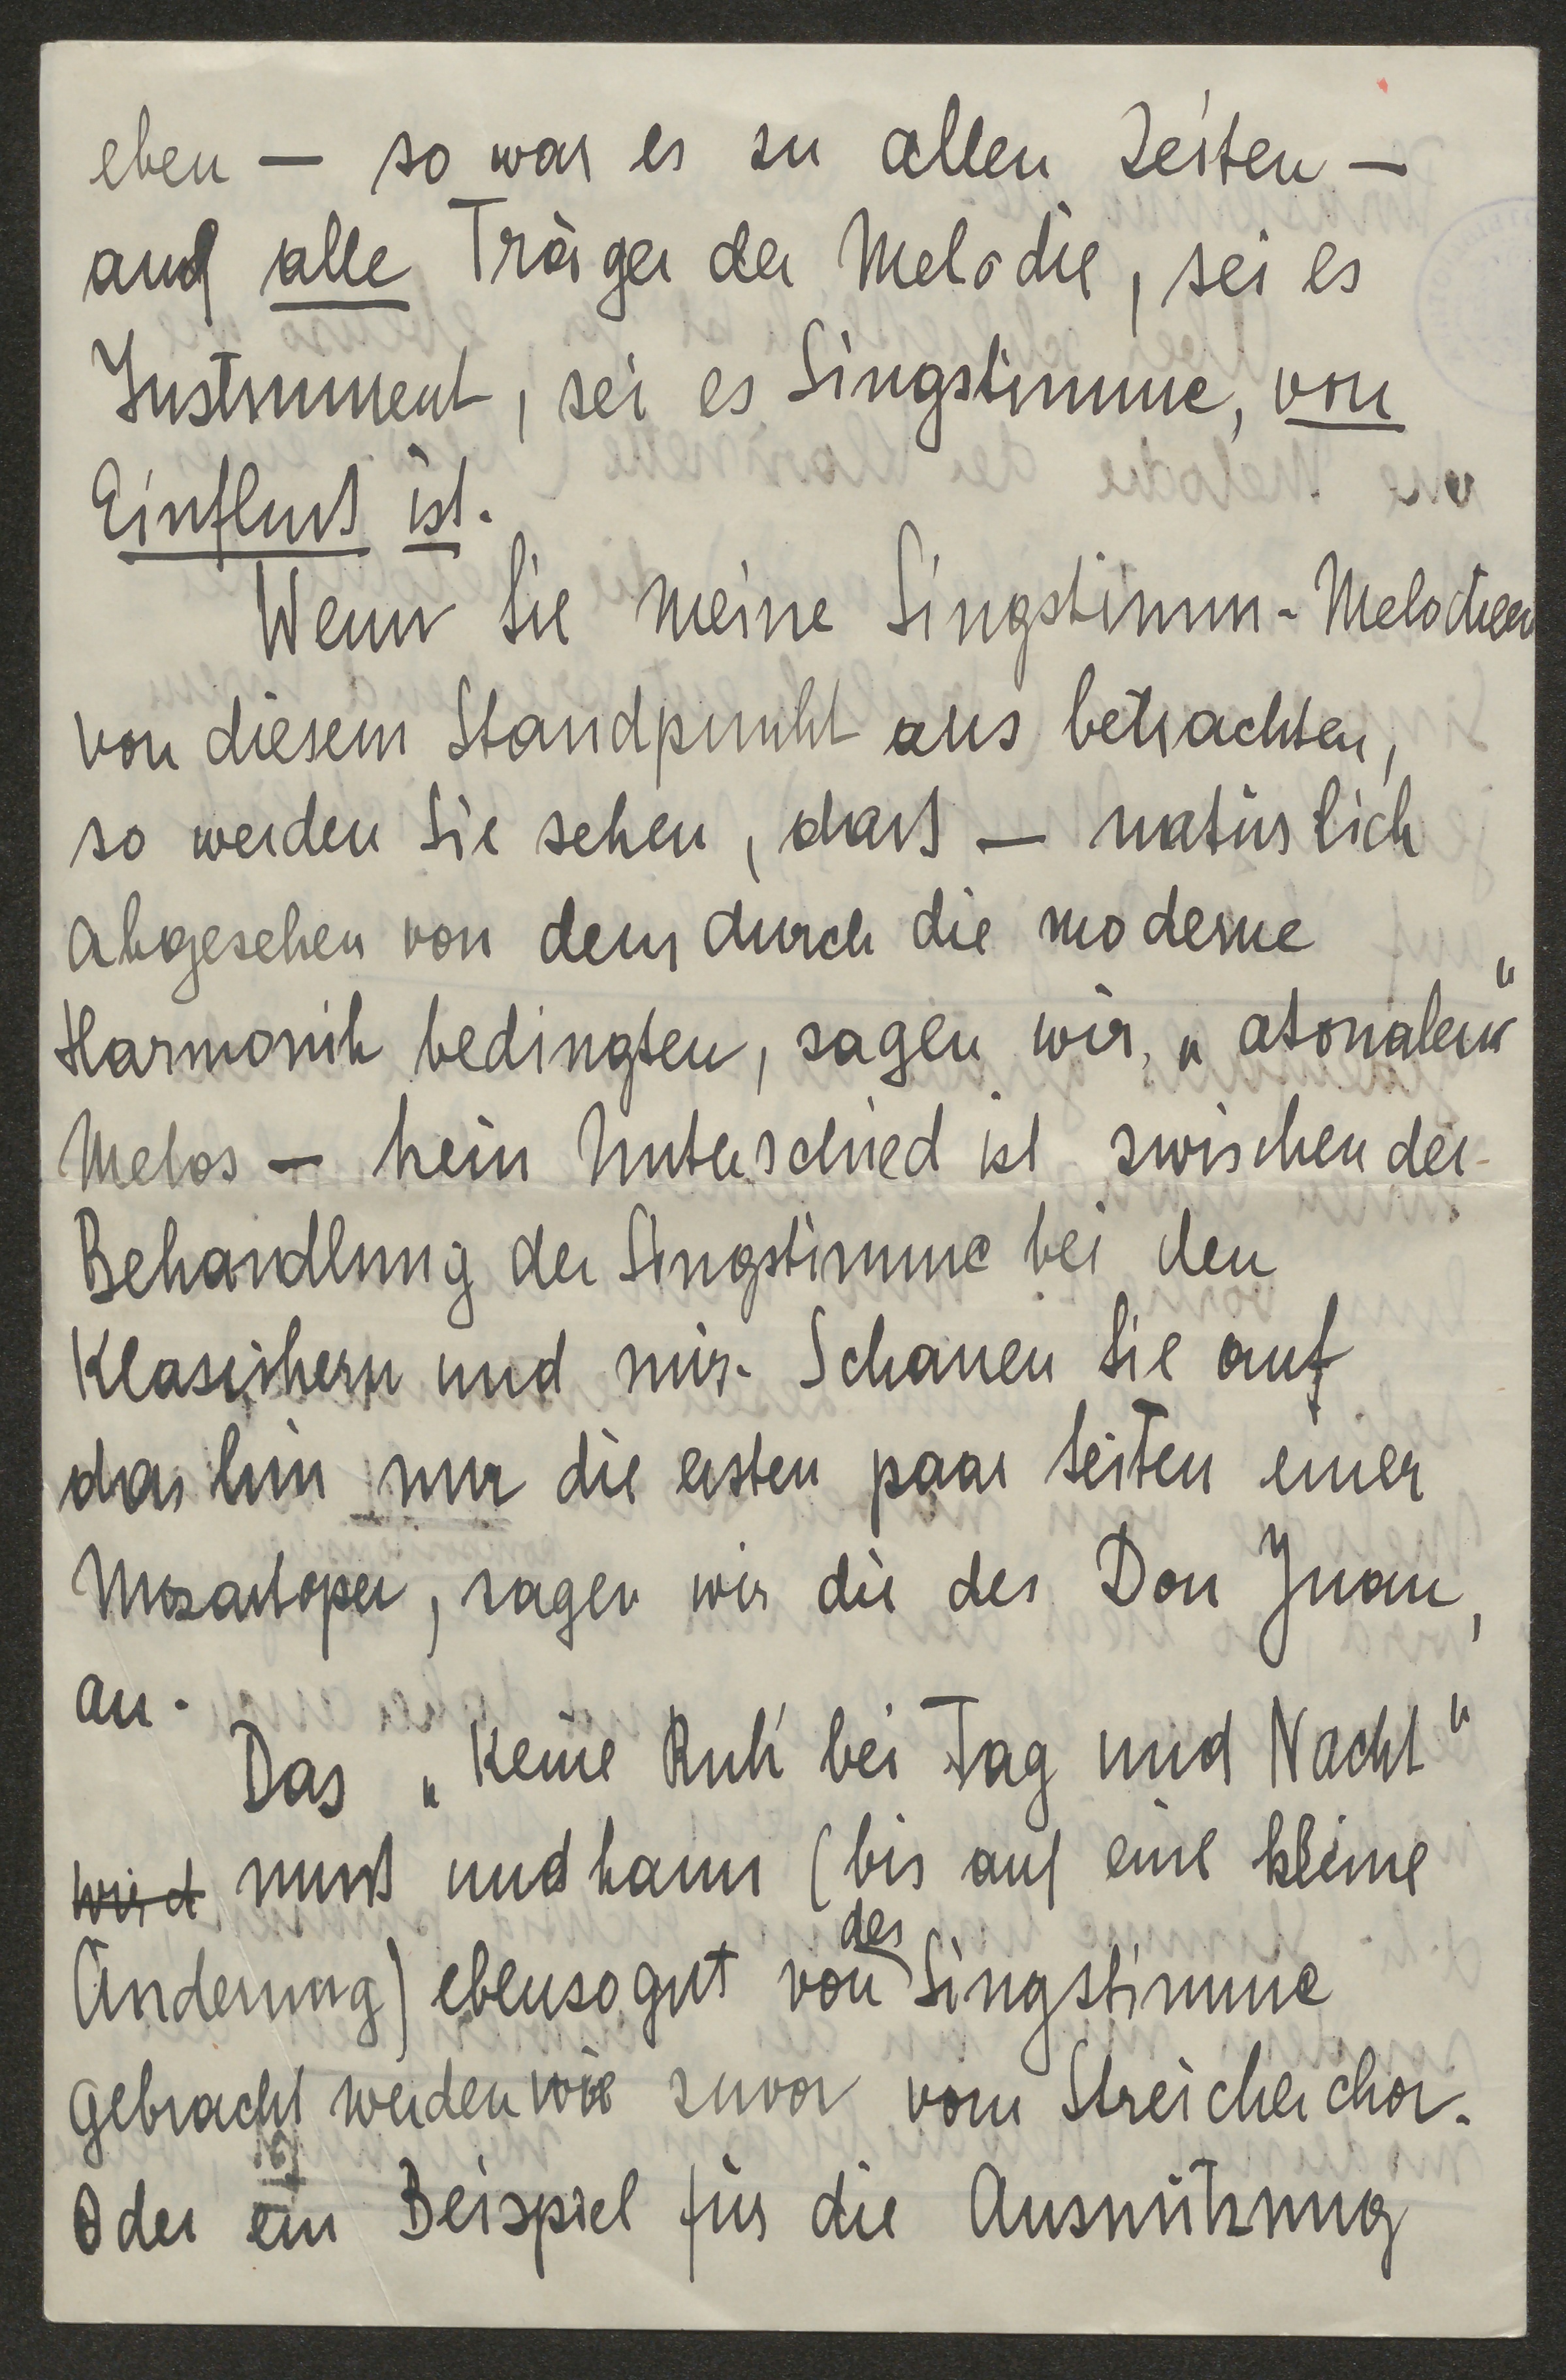 eben — so war es zu allen Zeiten —
auf alle Träger der Melodie, sei es
Instrument, sei es Singstimme, von
Einfluß ist.
Wenn Sie meine Singstimm-Melodieen
von diesem Standpunkt aus betrachten,
so werden Sie sehen, daß — natürlich
abgesehen von dem durch die moderne
Harmonik bedingten, sagen wir, „atonalen"
Melos — kein Unterschied ist zwischen der
Behandlung der Singstimme bei den
Klassikern und mir. Schauen Sie auf
das hin nur die ersten paar Seiten einer
Mozartoper, sagen wir die des Don Juan,
an.
Das „Keine Ruh' bei Tag und Nacht"
wird muß und kann (bis auf eine kleine
Änderung) ebensogut von der Singstimme
gebracht werden wie zuvor vom Streicherchor.
Oder ein Beispiel für die Ausnützung